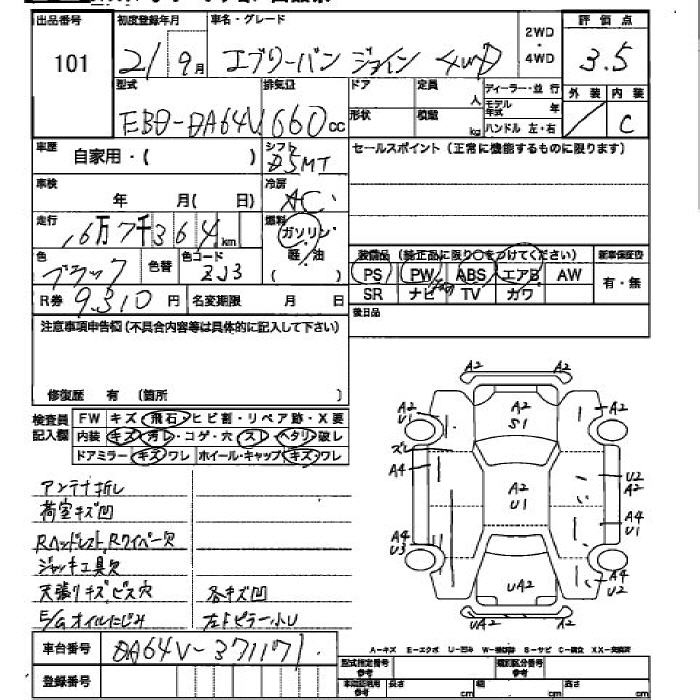 出品番号 101
初度登録年月 21年 9月
車名・グレード エブリーバン ジョイン 4WD
2WD・4WD
評価点 3.5
型式 EBD-DA64V
排気量 660cc
ドア
定員 人
形状
積載 kg
ディーラー・並行
モデル年式 年
ハンドル 左・右
外装 /
内装 C
車歴 自家用・( )
シフト D5MT
セールスポイント（正常に機能するものに限ります）
車検 年 月( 日)
冷房 AC
走行 16万7千364km
燃料 ガソリン・軽/油 ( )
色 ブラック
色替
色コード ZJ3
装備品（純正品に限り○をつけてください）
新車保証書
PS PW ABS エアB AW
SR ナビ TV カワ
有・無
R券 9,310円
名変期限 月 日
後日品
注意事項申告欄（不具合内容等は具体的に記入して下さい）
修復歴 有 (箇所 )
検査員記入欄
FW キズ・飛石・ヒビ割・リペア跡・X要
内装 キズ・汚レ・コゲ・穴・スレ・ヘタリ・破レ
ドアミラー キズ・ワレ ホイール・キャップ キズ・ワレ
アンテナ折レ
荷室キズ凹
Rヘッドレスト,Rワイパー欠
ジャッキ工具欠
天張りキズ,ビス穴 各キズ凹
E/Gオイルにじみ 左Fピラー小U
A2
A2 U1
A2 S1
A2
ズレ
A4
A2 U1
U2 A2
A4 U3
A4 U1
UA2
A4 U2
UA2
A2
車台番号 DA64V-371171
登録番号
A-キズ E-エクボ U-凹み W-補修跡 S-サビ C-腐食 XX-交換済
型式指定番号 参考
類別区分番号 参考
参考 長さ cm 幅 cm 高さ cm